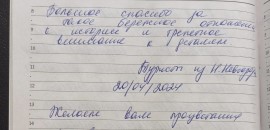 Большое спасибо за
такое бережное отношение
к истории и трепетное
внимание к деталям
Турист из Н.Новгорода
20/04/2024
Желаем вам процветания